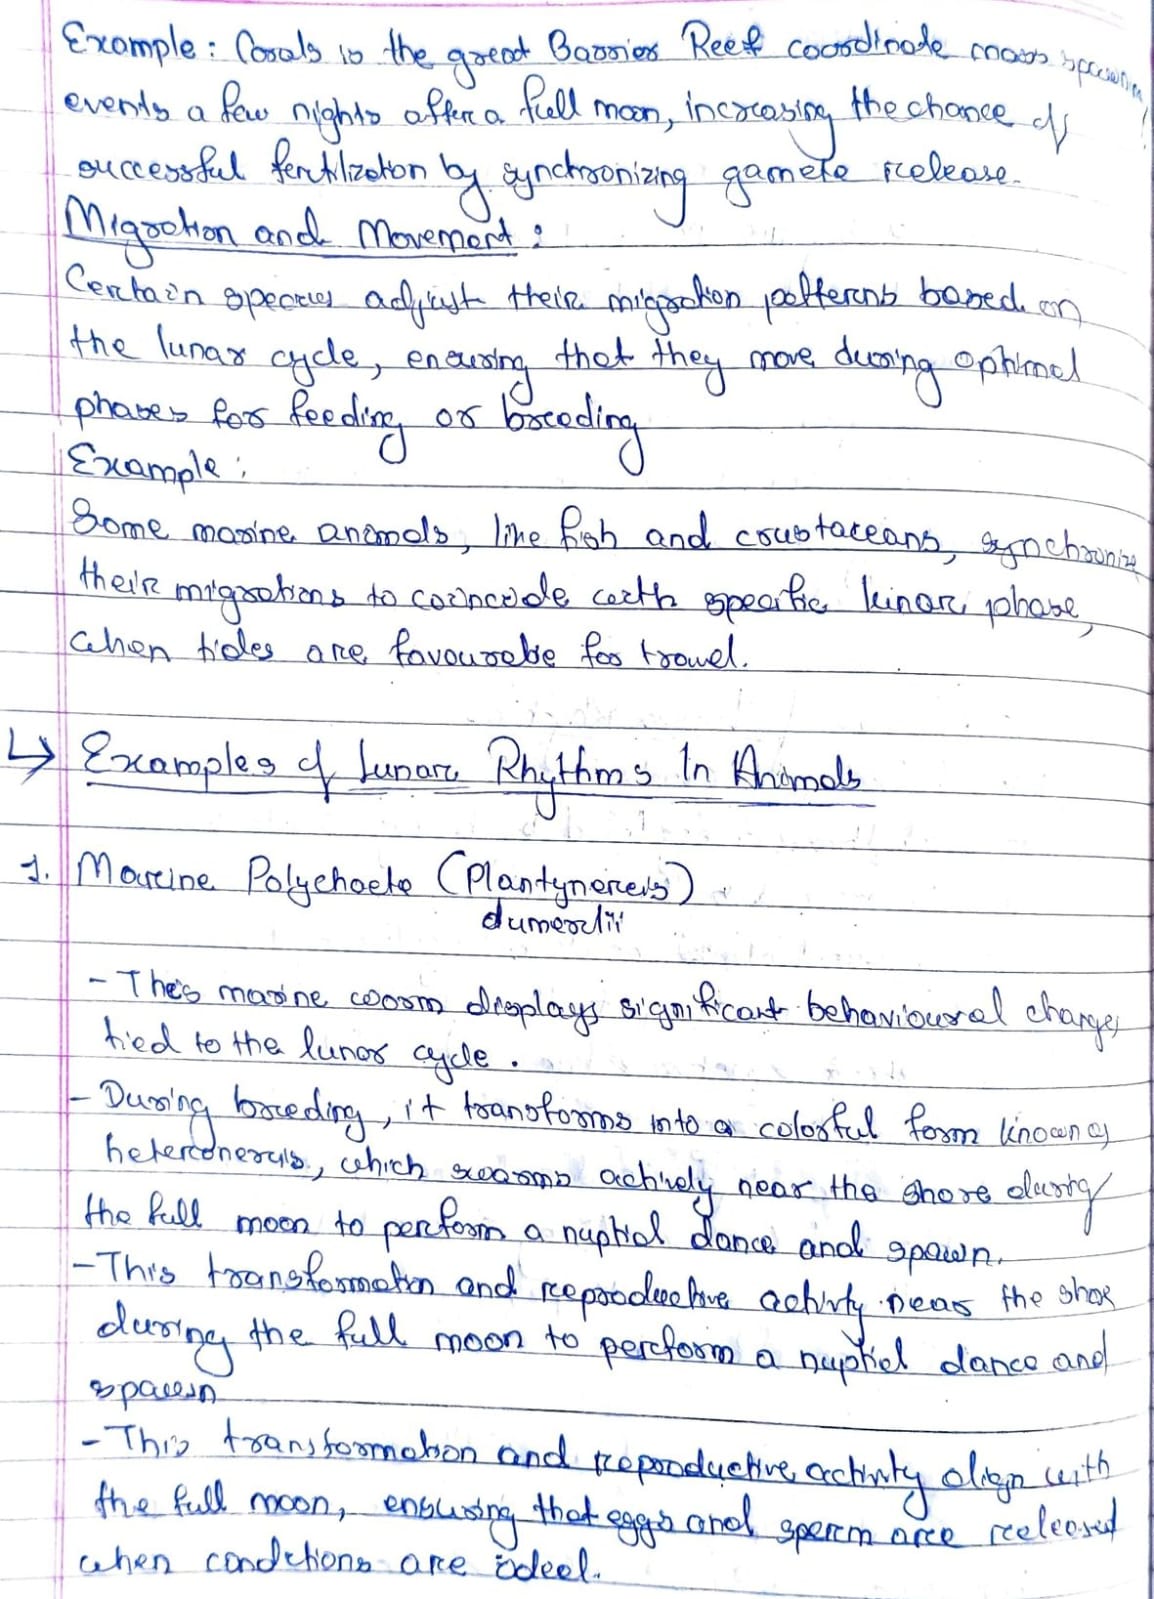 Example: Corals in the great Barrier Reef coordinate mass spawning
events a few nights after a full moon, increasing the chance of
successful fertilization by synchronizing gamete release.
Migration and Movement:
Certain species adjust their migration patterns based on
the lunar cycle, ensuring that they move during optimal
phases for feeding or breeding
Example:
Some marine animals, like fish and crustaceans, synchronize
their migrations to coincide with specific lunar phase,
when tides are favourable for travel.
↳ Examples of Lunar Rhythms In Animals
1. Marine Polychaete (Plantynereis)
dumerlii
- This marine worm displays significant behavioural changes
tied to the lunar cycle.
- During breeding, it transforms into a colorful form known as
heteronereis, which swarms actively near the shore during
the full moon to perform a nuptial dance and spawn.
- This transformation and reproductive activity near the shore
during the full moon to perform a nuptial dance and
spawn
- This transformation and reproductive activity align with
the full moon, ensuring that eggs and sperm are released
when conditions are ideal.